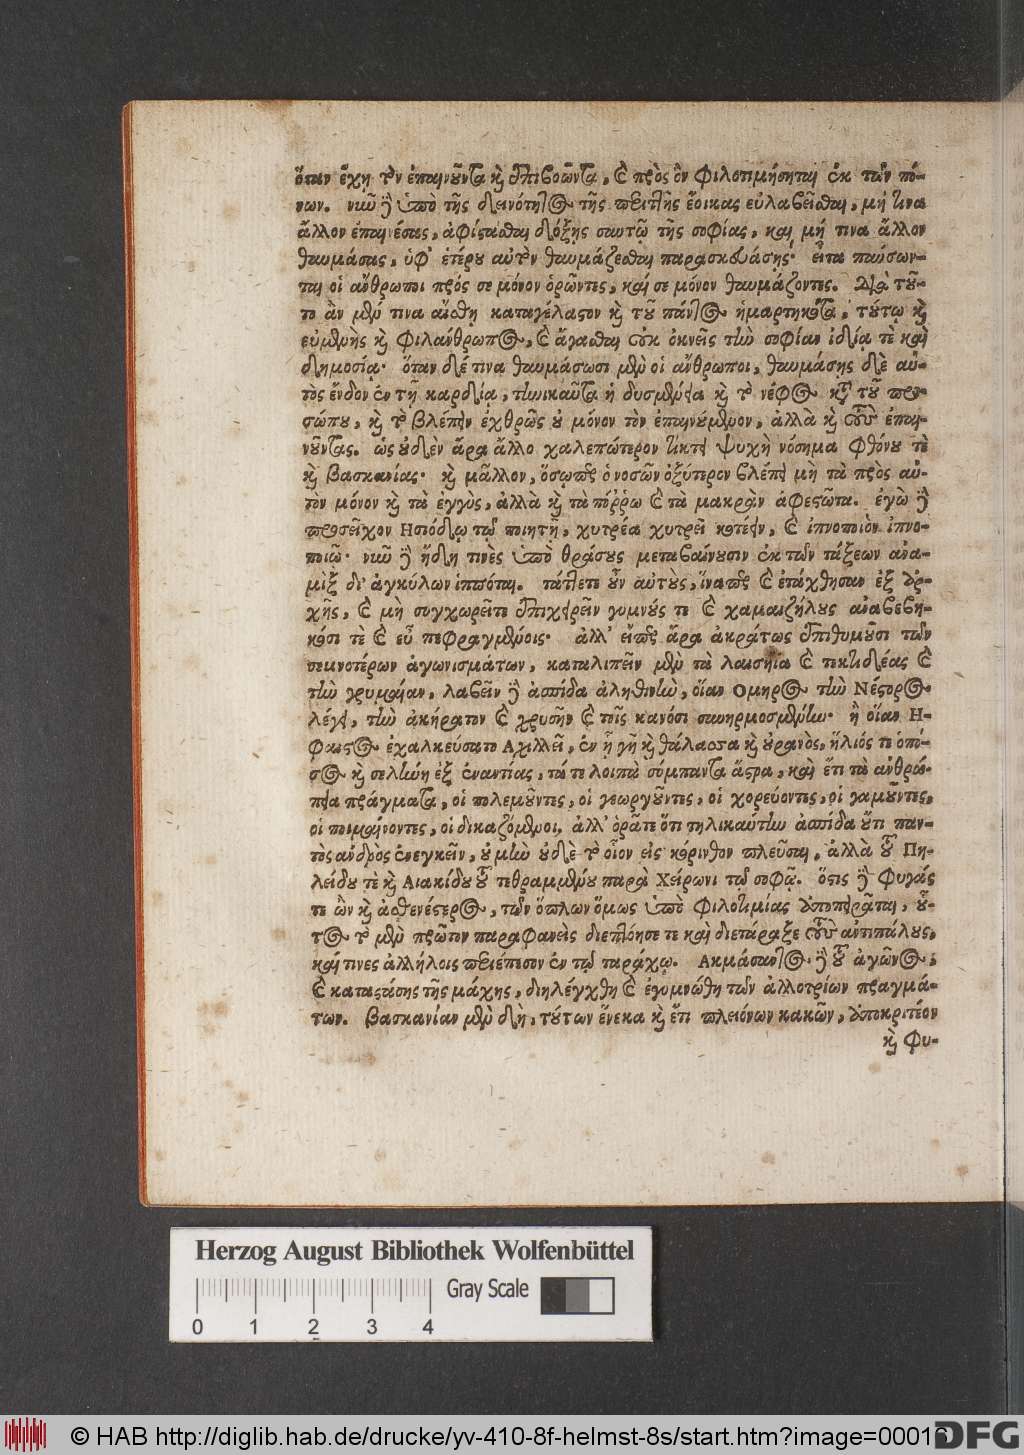 ὅταν ἔχη τὸν ἐπαινοῦντα καὶ ἐπιβοῶντα, καὶ πρὸς ὃν φιλοτιμήσηται ἐκ τῶν πό-
νων. νῦν δὲ ὑπὸ τῆς δεινότητος τῆς περιττῆς ἔοικας εὐλαβεῖσθαι, μή τινα
ἄλλον ἐπαινέσας, ἀφίστασθαι δόξης σαυτῷ τῆς σοφίας, καὶ μή τινα ἄλλον
θαυμάσας, ὑφ' ἑτέρου αὐτὸν θαυμάζεσθαι παρασκευάσης· εἶτα παύσων-
ται οἱ ἄνθρωποι πρός σε μόνον ὁρῶντες, καί σε μόνον θαυμάζοντες. Διὰ τοῦ-
το ἂν μέν τινα αἴσθη καταγέλαστον καὶ τοῦ παντὸς ἡμαρτηκότα, τούτῳ καὶ
εὐμενὴς καὶ φιλάνθρωπος, καὶ ἄγασθαι οὐκ ὀκνεῖς τὴν σοφίαν ἰδίᾳ τὲ καὶ
δημοσίᾳ· ὅταν δέ τινα θαυμάσωσι μὲν οἱ ἄνθρωποι, θαυμάσης δὲ αὐ-
τὸς ἔνδον ἐν τῇ καρδίᾳ, τηνικαῦτα ἡ δυσμένεια καὶ τὸ νέφος καὶ τοῦ προ-
σώπου, καὶ τὸ βλέπειν ἐχθρῶς οὐ μόνον τὸν ἐπαινούμενον, ἀλλὰ καὶ τοὺς ἐπαι-
νοῦντας. ὡς οὐδὲν ἄρα ἄλλο χαλεπώτερον τίκτει ψυχὴ νόσημα φθόνου τὲ
καὶ βασκανίας· καὶ μᾶλλον, ὅσῳπερ ὁ νοσῶν ὀξύτερον βλέπει μὴ τὰ πρὸς αὑ-
τὸν μόνον καὶ τὰ ἐγγὺς, ἀλλὰ καὶ τὰ πόῤῥω καὶ τὰ μακρὰν ἀφεστῶτα. ἐγὼ δὲ
προσεῖχον Ησιόδῳ τῷ ποιητῇ, χυτρέα χυτρεῖ κοτέειν, καὶ ἰπνοποιὸν ἰπνο-
ποιῷ· νῦν δὲ ἤδη τινὲς ὑπὸ θράσους μεταβαίνουσιν ἐκ τῶν τάξεων ἀνα-
μὶξ δι' ἀγκύλων ἱππόται. τάττετε οὖν αὐτοὺς, ἵναπερ καὶ ἐτάχθησαν ἐξ ἀρ-
χῆς, καὶ μὴ συγχωρεῖτε ἐπιχειρεῖν γυμνούς τε καὶ χαμαιζήλους ἀναβεβη-
κόσι τὲ καὶ εὖ πεφραγμένοις· ἀλλ' εἴπερ ἄρα ἀκράτως ἐπιθυμοῦσι τῶν
σεμνοτέρων ἀγωνισμάτων, καταλιπεῖν μὲν τὰ λαισήϊα καὶ τευτιδέας καὶ
τὴν γρυμαίαν, λαβεῖν δὲ ἀσπίδα ἀληθινὴν, οἵαν Ομηρος τὴν Νέστορος
λέγει, τὴν ἀκήρατον καὶ χρυσῆν καὶ τοῖς κανόσι συνηρμοσμένην· ἢ οἵαν Η-
φαιστος ἐχαλκεύσατο Αχιλλεῖ, ἐν ᾗ γῆ καὶ θάλασσα καὶ οὐρανὸς, ἥλιός τε ὁπό-
σος καὶ σελήνη ἐξ ἐναντίας, τά τε λοιπὰ σύμπαντα ἄστρα, καὶ ἔτι τὰ ἀνθρώ-
πεια πράγματα, οἱ πολεμοῦντες, οἱ γεωργοῦντες, οἱ χορεύοντες, οἱ γαμοῦντες,
οἱ ποιμαίνοντες, οἱ δικαζόμενοι. ἀλλ' ὁρᾶτε ὅτι τηλικαύτην ἀσπίδα οὔτι παν-
τὸς ἀνδρὸς ἐνεγκεῖν, οὐ μὴν οὐδὲ τὸ οἷον εἰς κόρινθον πλεῦσαι, ἀλλὰ τοῦ Πη-
λείδου τὲ καὶ Αιακίδου τοῦ τεθραμμένου παρὰ Χείρωνι τῷ σοφῷ. ὅστις δὲ φυγάς
τε ὢν καὶ ἀσθενέστερος, τῶν ὅπλων ὅμως ὑπὸ φιλοτιμίας ἀποπειρᾶται, οὗ-
τος τὸ μὲν πρῶτον παραφανεὶς διεπτόησε τε καὶ διετάραξε τοὺς ἀντιπάλους,
καί τινες ἀλλήλοις περιέπεσον ἐν τῷ ταράχῳ. Ακμάσαντος δὲ τοῦ ἀγῶνος,
καὶ καταστάσης τῆς μάχης, διηλέγχθη καὶ ἐγυμνώθη τῶν ἀλλοτρίων πραγμά-
των. βασκανίαν μὲν δὴ, τούτων ἕνεκα καὶ ἔτι πλειόνων κακῶν, ἀποκριτέον
καὶ φυ-
Herzog August Bibliothek Wolfenbüttel
Gray Scale
0 1 2 3 4
© HAB http://diglib.hab.de/drucke/yv-410-8f-helmst-8s/start.htm?image=00016
DFG